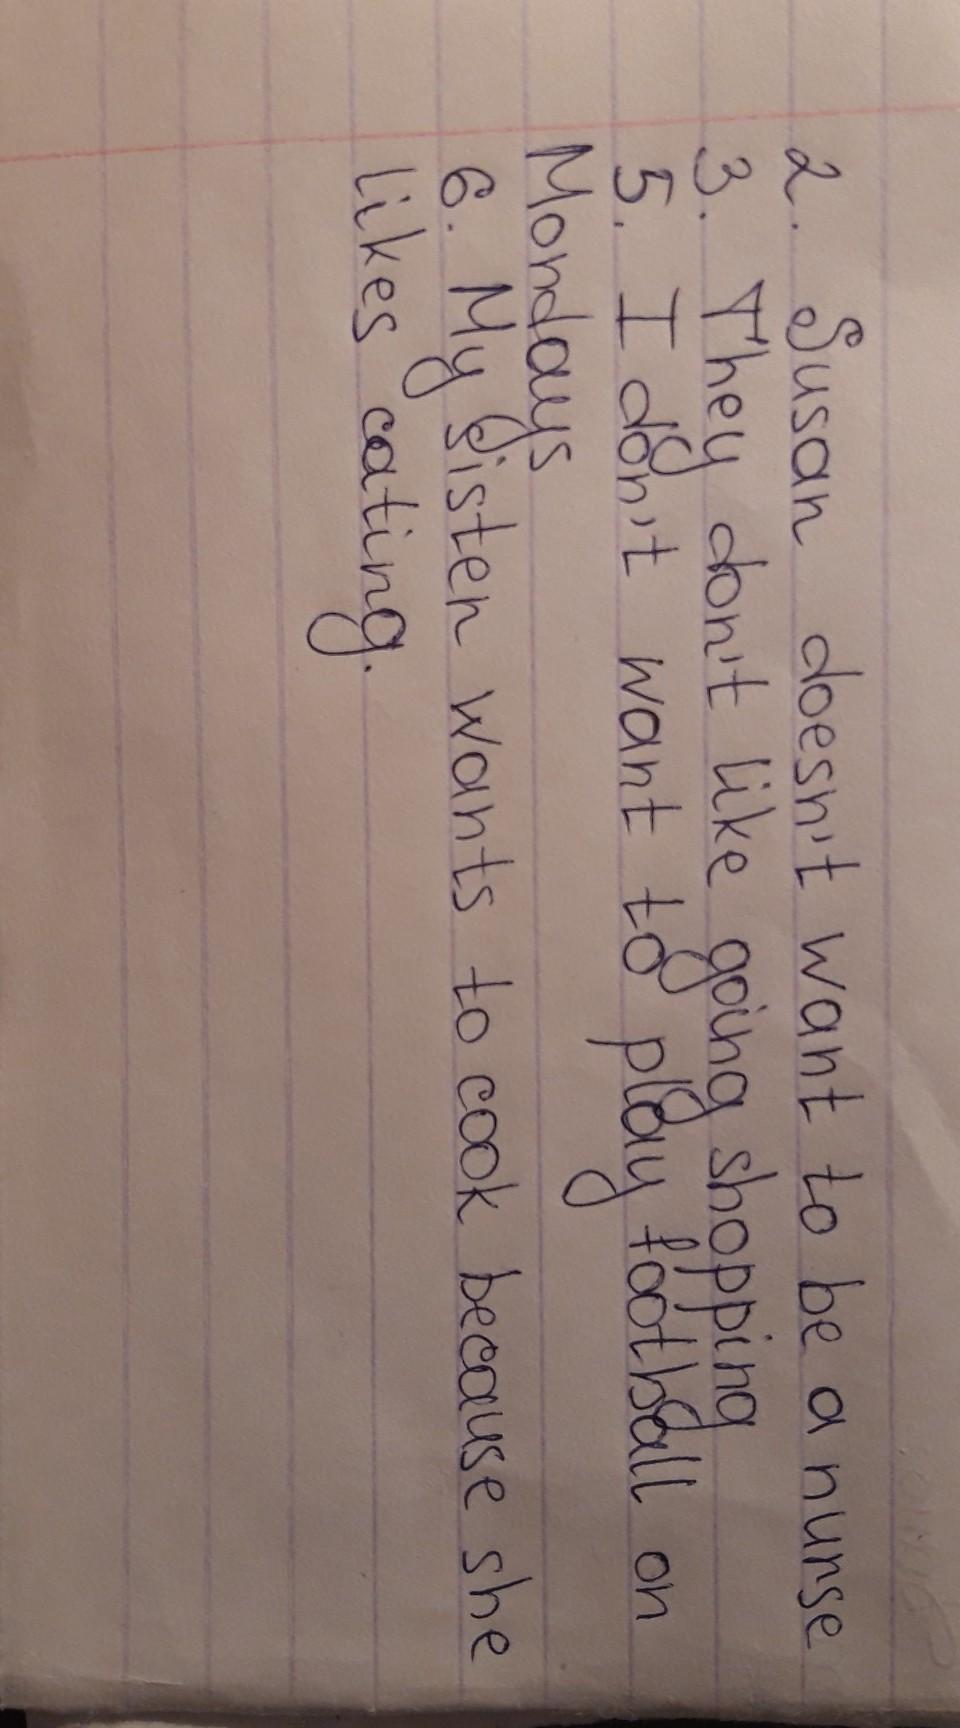 2. Susan doesn't want to be a nurse
3. They don't like going shopping
5. I don't want to play football on
Mondays
6. My sister wants to cook because she
likes eating.